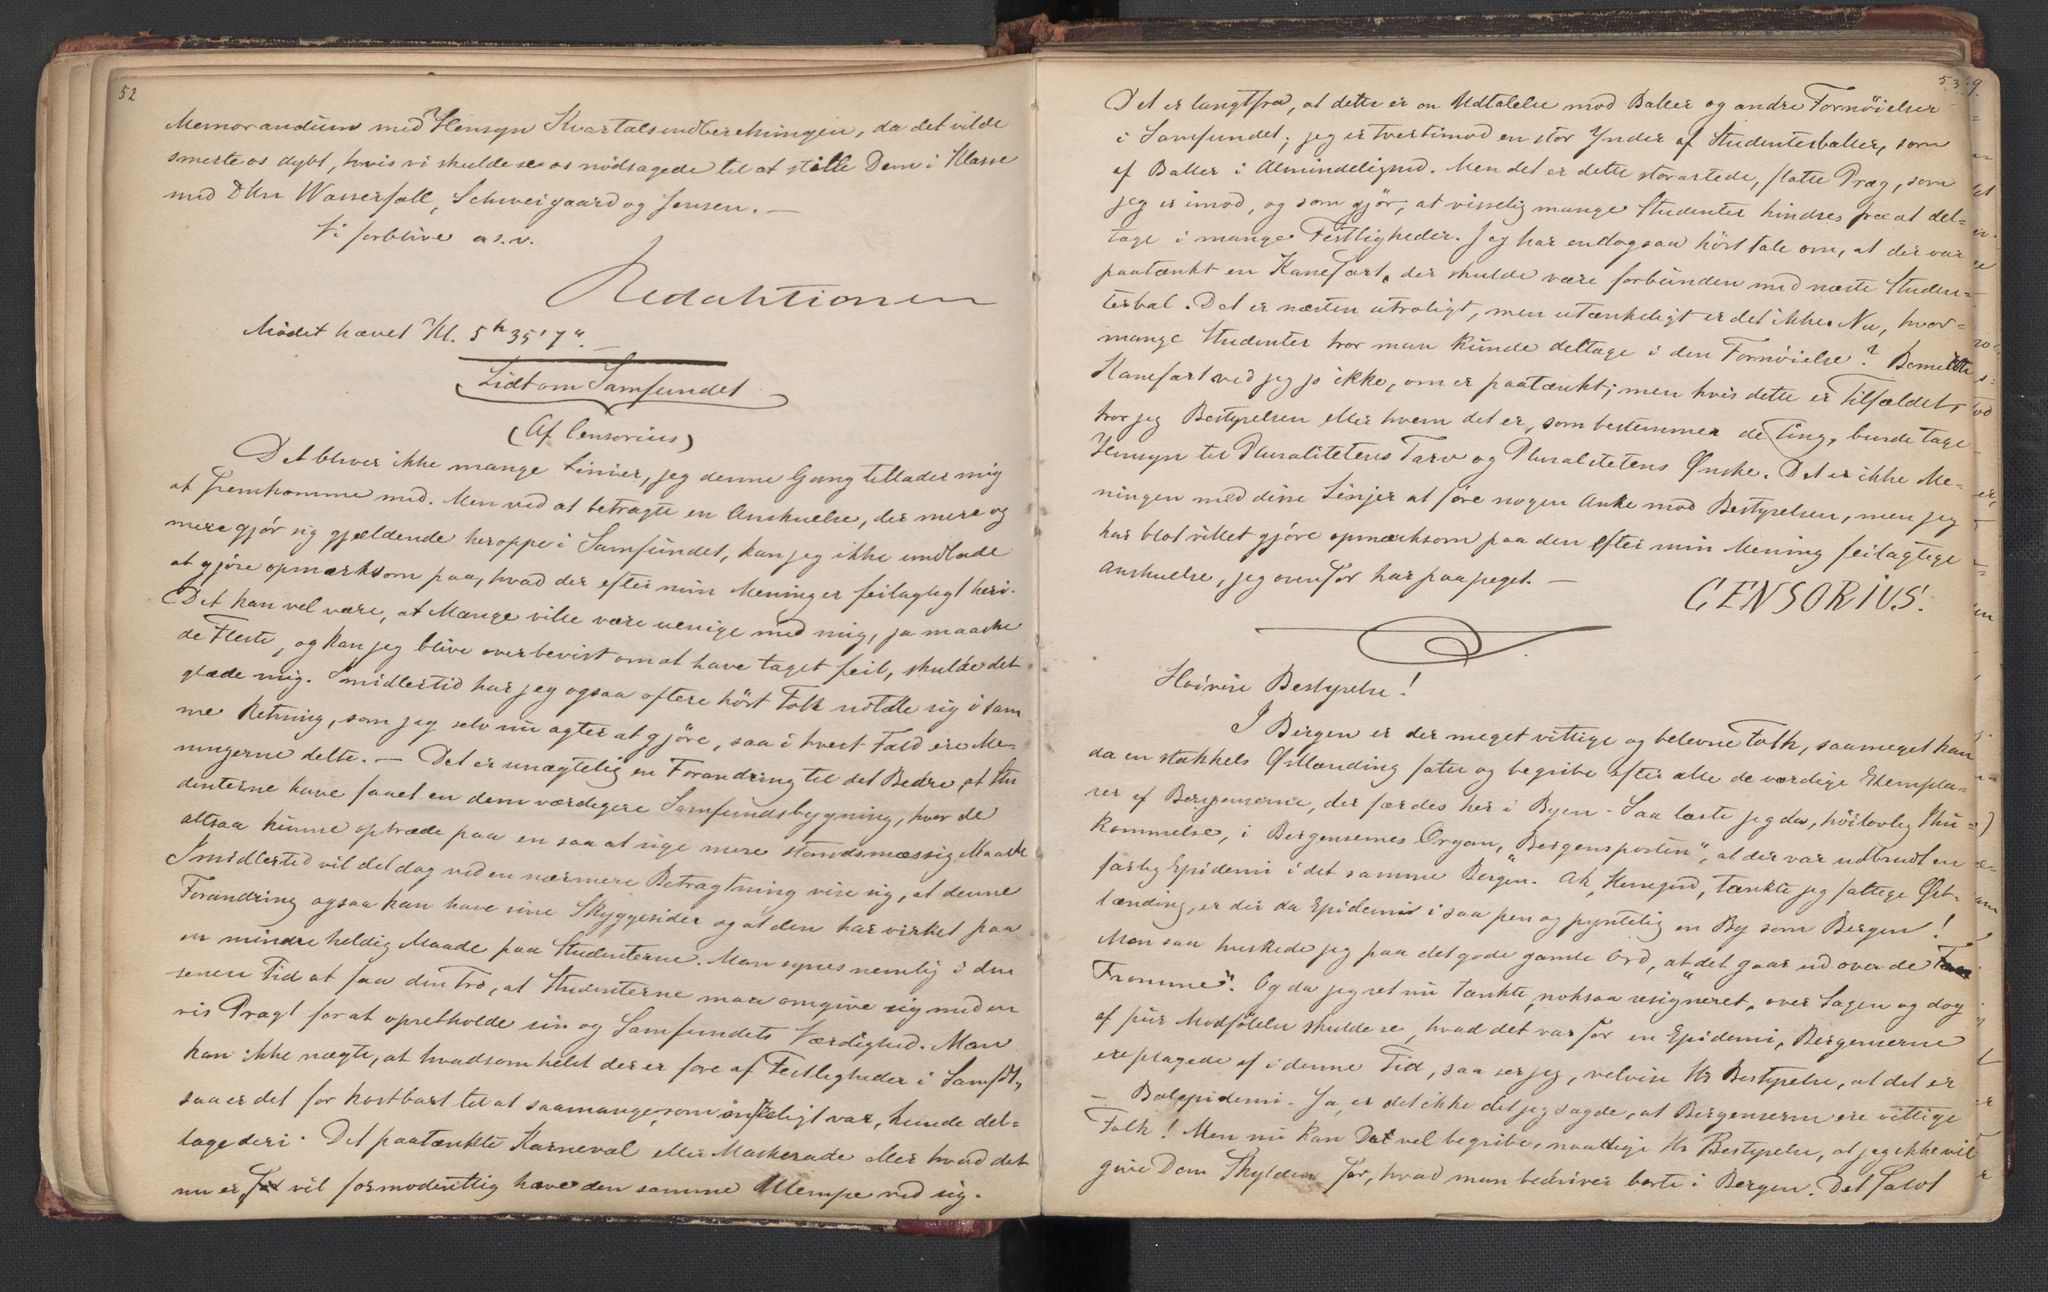 52
Memorandum med Hensyn Kvartalsindberetningen, da det vilde
smerte os dybt, hvis vi skulde se os nödsagede til at stille Dem i Klasse
med DHrr Wasserfall, Schweigaard og Jensen. —
Vi forblive o.s.v.
Redaktionen
Mödet hævet Kl. 5h 35' 7". —
Lidt om Samfundet
(Af Censorius)
Det bliver ikke mange Linier, jeg denne Gang tillader mig
at fremkomme med. Men ved at betragte en Anskuelse, der mere og
mere gjör sig gjældende heroppe i Samfundet, kan jeg ikke undlade
at gjöre opmærksom paa, hvad der efter min Mening er feilagtigt heri.
Det kan vel være, at Mange vilde være uenige med mig, ja maaske
de Fleste, og kan jeg blive overbevist om at have taget feil, skulde det
glæde mig. Imidlertid har jeg ogsaa oftere hört Folk udtale sig i sam
me Retning, som jeg selv nu agter at gjöre, saa i hvert Fald ere Me-
ningerne delte. — Det er unægtelig en Forandring til det Bedre, at Stu
denterne have faaet en dem værdigere Samfundsbygning, hvor de
altsaa kunne optræde paa en saa at sige mere standsmæssig Maade
Imidlertid vil det dog ved en nærmere Betragtning vise sig, at denne
Forandring ogsaa kan have sine Skyggesider og at den har virket paa
en mindre heldig Maade paa Studenterne. Man synes nemlig i den
senere Tid at faa den Tro, at Studenterne maa omgive sig med en
vis Pragt for at opretholde sin og Samfundets Værdighed. Man
kan ikke nægte, at hvadsomhelst der er fore af Festligheder i Samf.,
saa er det for kostbart til at saamange, som önskeligt var, kunde del-
tage deri. Det paatænkte Karneval eller Maskerade eller hvad det
nu er vil formodentlig have den samme Ulempe ved sig.
53
Det er langtfra, at dette er en Udtalelse mod Baller og andre Fornöielser
i Samfundet; jeg er tvertimod en stor Ynder af Studenterballer, som
af Baller i Almindelighed. Men det er dette storartede, flotte Præg, som
jeg er imod, og som gjör, at visselig mange Studenter hindres fra at del-
tage i mange Festligheder. Jeg har endogsaa hört tale om, at der var
paatænkt en Kanefart, der skulde være forbunden med næste Studen-
terbal. Det er næsten utroligt, men utænkeligt er det ikke. Nu, hvor-
mange Studenter tror man kunde deltage i den Fornöielse? Bemeldte
Kanefart ved jeg jo ikke, om er paatænkt; men hvis dette er Tilfældet,
tror jeg Bestyrelsen eller hvem det er, som bestemmer de Ting, burde tage
Hensyn til Pluralitetens Tarv og Pluralitetens Ønske. Det er ikke Me-
ningen med disse Linjer at före nogen Anke mod Bestyrelsen, men jeg
har blot villet gjöre opmærksom paa den efter min Mening feilagtige
Anskuelse, jeg ovenfor har paapeget. —
CENSORIUS.
Höivise Bestyrelse!
I Bergen er der meget vittige og belevne Folk, saameget kan
da en stakkels Østlænding fatte og begribe efter alle de værdige Exempla-
rer af Bergenserne, der færdes her i Byen. Saa læste jeg da, höilovlig Ihu-
kommelse, i Bergensernes Organ, "Bergensposten", at der var udbrudt en
farlig Epidemi i det samme Bergen. Ak, Herregud, tænkte jeg fattige Øst-
lænding, er der da Epidemi i saa pen og pyntelig en By som Bergen!
Men saa huskede jeg paa det gode gamle Ord, at "det gaar ud over de
Fromme". Og da jeg ret nu tænkte, noksaa resigneret, over Sagen og dog
af pur Medfölelse skulde se, hvad det var for en Epidemi, Bergenserne
ere plagede af i denne Tid, saa ser jeg, velvise Hr Bestyrelse, at det er
— Balepidemi. Ja, er det ikke det jeg sagde, at Bergenserne ere vittige
Folk! Men nu kan De vel begribe, naadige Hr Bestyrelse, at jeg ikke vil
give Dem Skylden for, hvad man bedriver borte i Bergen. Det faldt